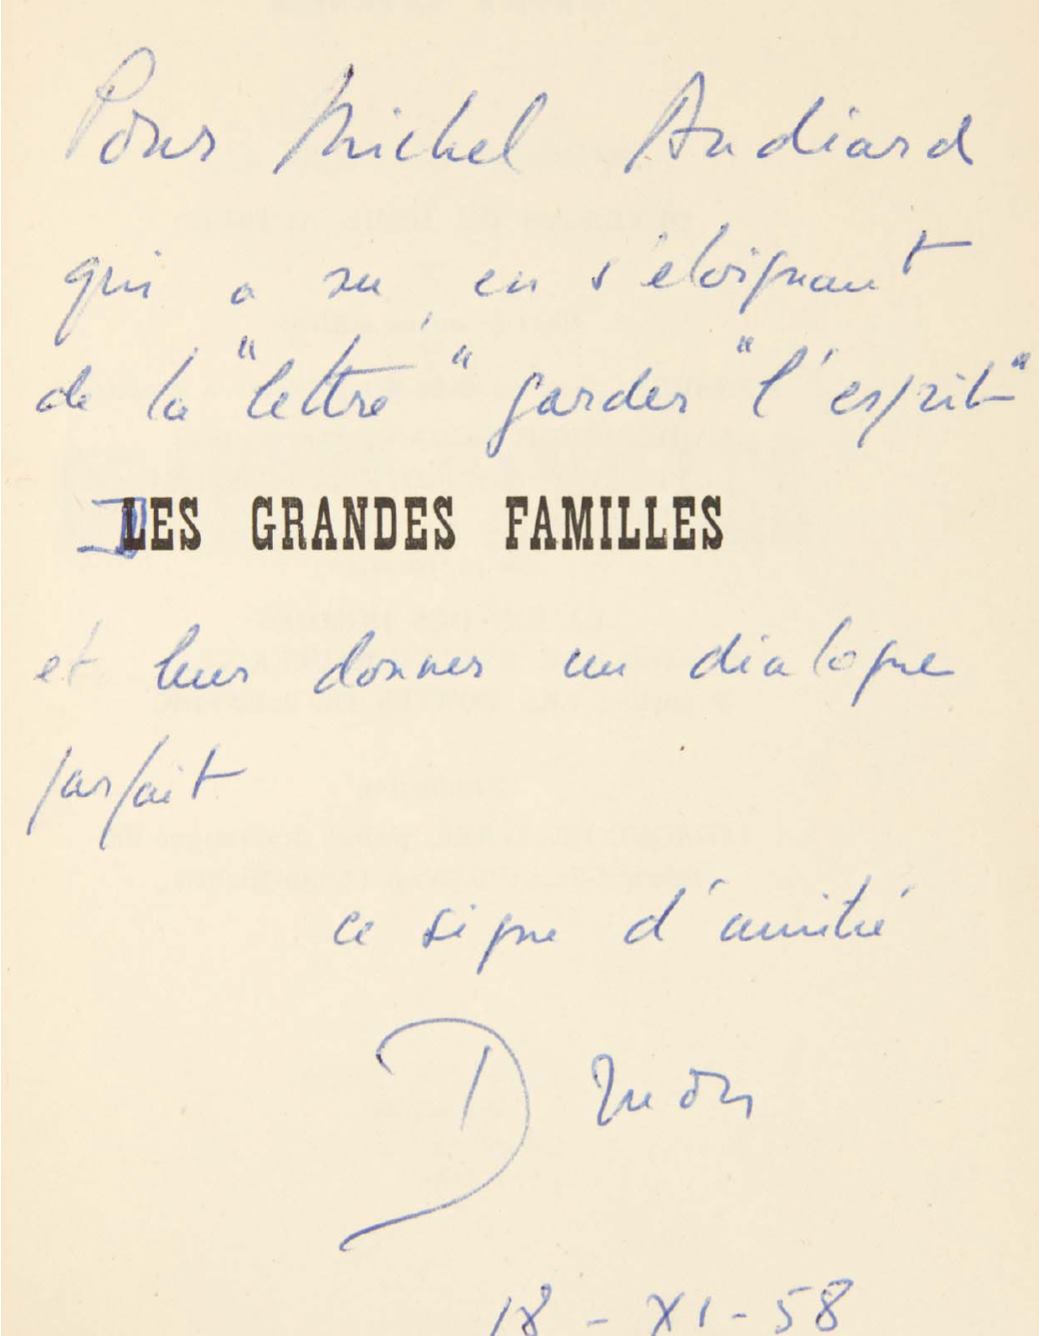 Pour Michel Audiard
qui a su en s'éloignant
de la "lettre" garder "l'esprit"
DES GRANDES FAMILLES
et leur donner un dialogue
parfait
ce signe d'amitié
Druon
18 - XI - 58